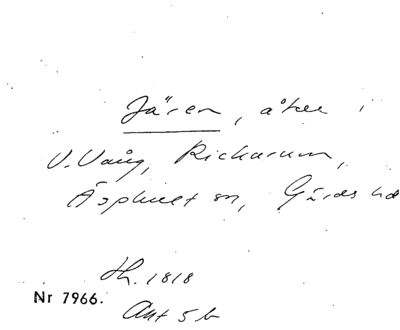 Jären, åker i
V. Vång, Rickarum,
Äsphult sn, Gärds hd
Sk. 1818
Nr 7966.
Akt 5 b